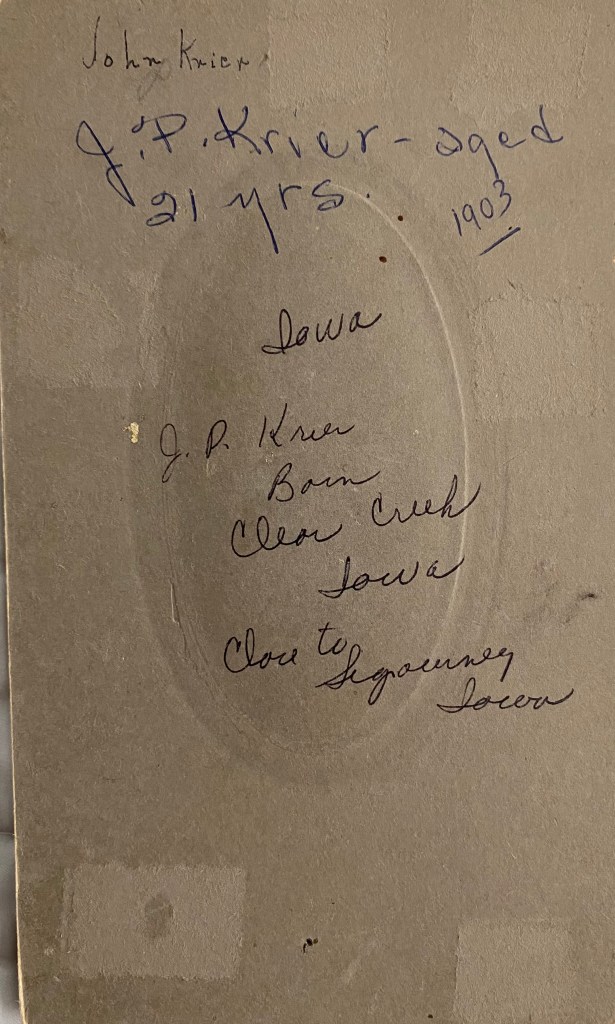 John Krier
J. P. Krier - aged
21 yrs.
1903
Iowa
J. P. Krier
Born
Clear Creek
Iowa
Close to
Sigourney
Iowa